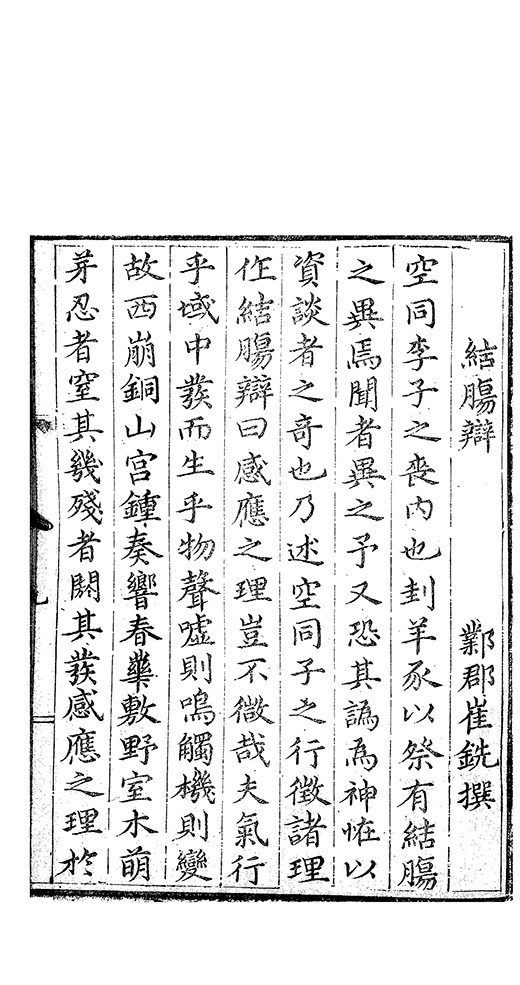 結膓辯　鄴郡崔銑撰
空同李子之喪內也刲羊豕以祭有結膓
之異焉聞者異之予又恐其譌為神恠以
資談者之奇也乃述空同子之行徵諸理
作結膓辯曰感應之理豈不微哉夫氣行
乎域中發而生乎物聲噓則鳴觸機則變
故西崩銅山宫鍾奏響春藥敷野室木萌
芽忍者窒其幾殘者閼其發感應之理於